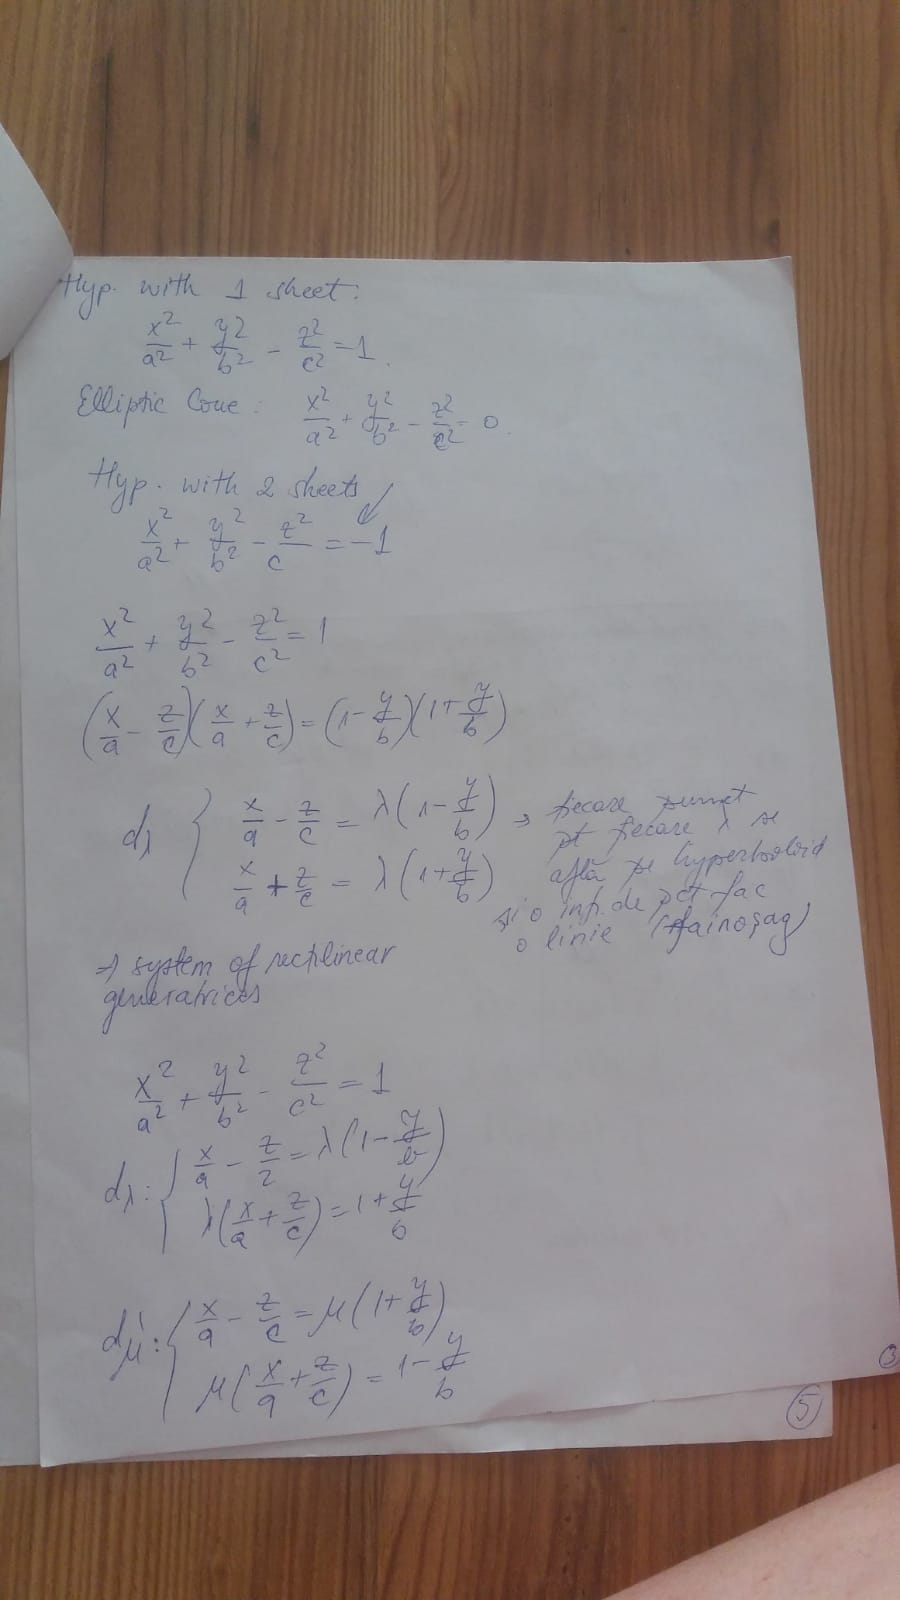 Hyp. with 1 sheet:
x²/a² + y²/b² - z²/c² = 1.
Elliptic Cone: x²/a² + y²/b² - z²/c² = 0.
Hyp. with 2 sheets
x²/a² + y²/b² - z²/c = -1
x²/a² + y²/b² - z²/c² = 1
(x/a - z/c)(x/a + z/c) = (1 - y/b)(1 + y/b)
dλ { x/a - z/c = λ(1 - y/b) → fiecare punct
pt fiecare λ se
x/a + z/c = λ(1 + y/b) află pe hyperboloid
și o inf. de pct fac
o linie (fainoșag)
⇒ system of rectilinear
generatrices
x²/a² + y²/b² - z²/c² = 1
dλ: { x/a - z/2 = λ(1 - y/b)
λ(x/a + z/c) = 1 + y/b
d'μ: { x/a - z/c = μ(1 + y/b)
μ(x/a + z/c) = 1 - y/b
3
5